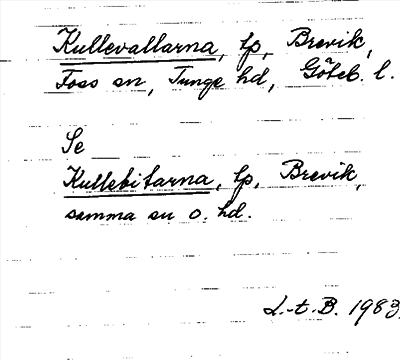 Kullevallarna, lp, Brevik,
Foss sn, Tunge hd, Göteb. l.
Se
Kullebitarna, lp, Brevik,
samma sn o. hd.
L.-t. B. 1983.